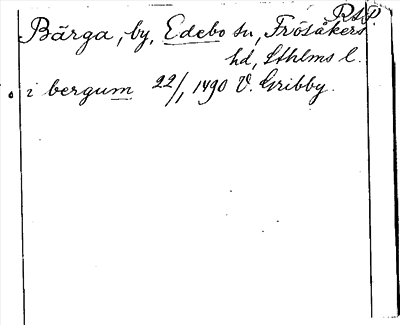 RAP.
Bärga, by, Edebo sn, Frösåkers
hd, Sthlms l.
i bergum 22/1 1490 V. Gribby.